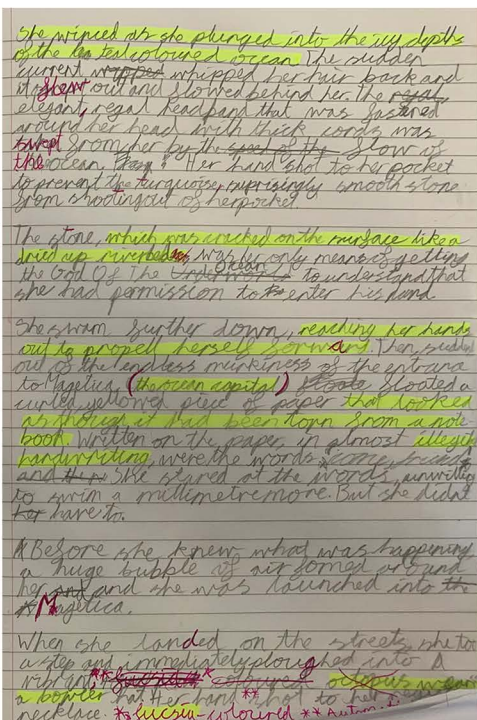 She winced as she plunged into the icy depths
of the teal coloured ocean. The sudden
current whipped her hair back and
it out and flowed behind her. The regal
elegant, regal headband that was fastened
around her head with thick cords was
swept from her by the flow of
the ocean. Her hand shot to her pocket
to prevent the turquoise, surprisingly smooth stone
from shooting out of her pocket.
The stone, which was cracked on the surface like a
dried up riverbed was her only means of getting
the God Of The Ocean to understand that
she had permission to enter his land
She swam further down, reaching her hands
out to propell herself forward. Then, sudden
out of the endless murkiness of the entrance
to Magetica (the ocean capital) floated a
curled yellowed piece of paper that looked
as though it had been torn from a note
book. Written on the paper, in almost illegible
handwriting, were the words
and She stared at the words, unwilling
to swim a millimetre more. But she didn't
have to.
Before she knew what was happening
a huge bubble of air formed around
her and she was launched into the
Magetica.
When she landed on the streets, she too
a step and immediately ploughed into A
octopus wearin
a bowler hat. Her hand shot to her
necklace. *fucsia-coloured **